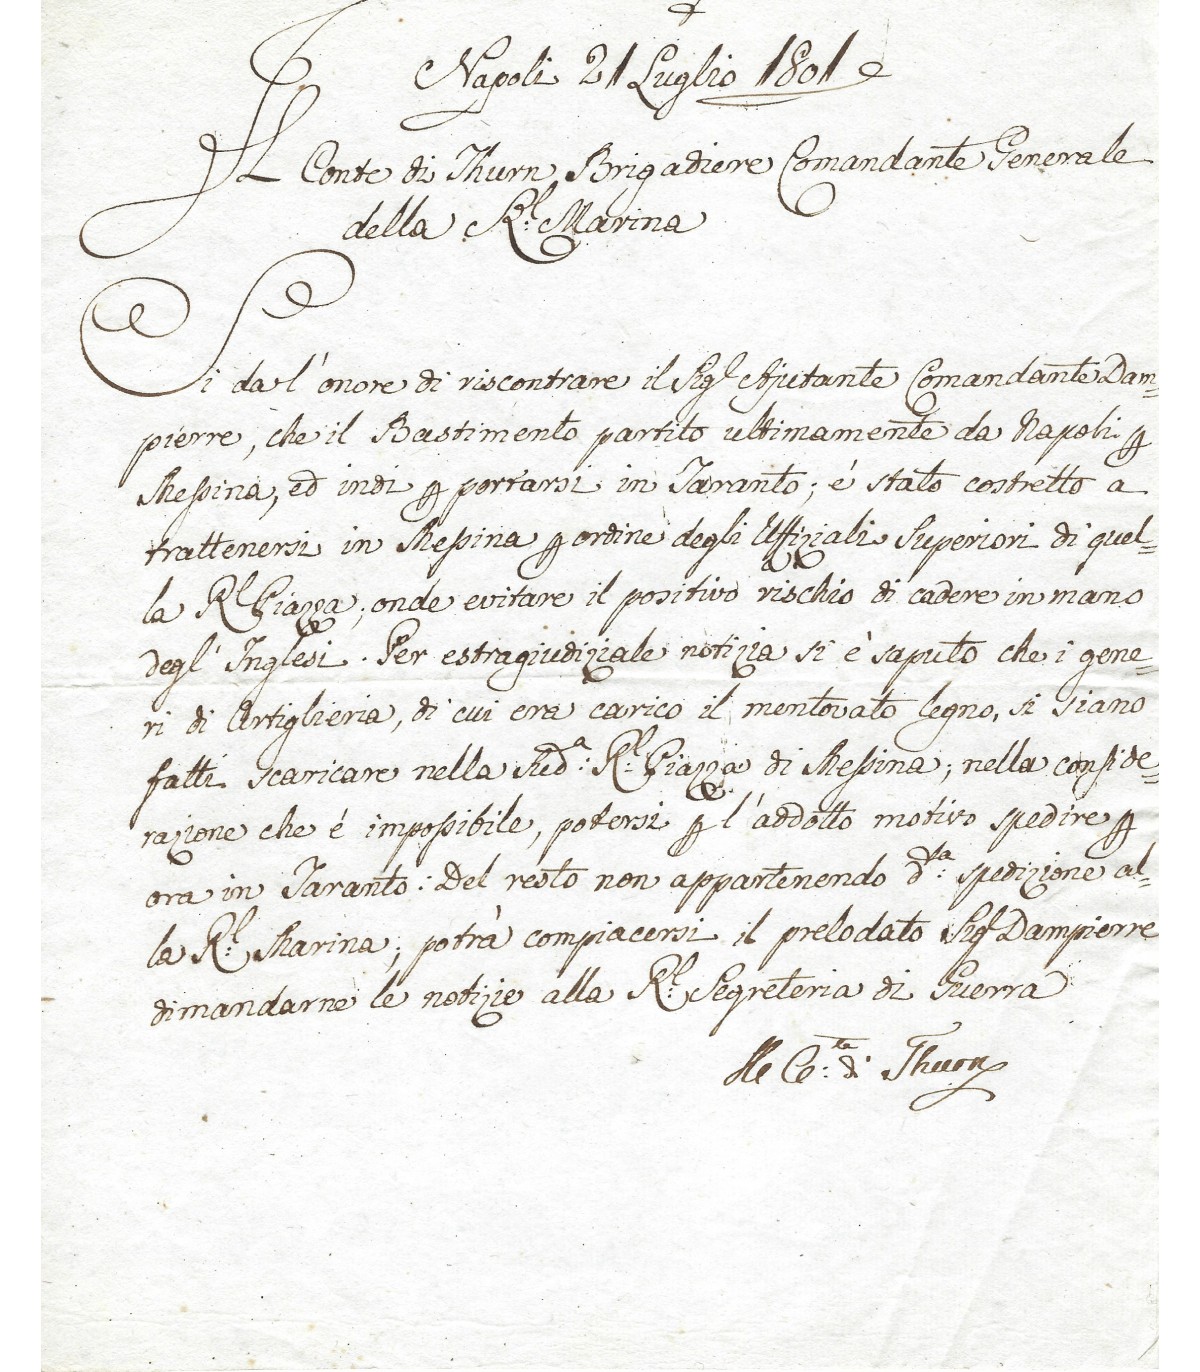 Napoli 21 Luglio 1801
Il Conte di Thurn Brigadiere Comandante Generale
della Rl. Marina
Si da l'onore di riscontrare il Sigl. Ajutante Comandante Dam=
pierre, che il Bastimento partito ultimamente da Napoli p
Messina, ed indi p portarsi in Taranto; è stato costretto a
trattenersi in Messina p ordine degli Uffiziali Superiori di quel=
la Rl. Piazza; onde evitare il positivo rischio di cadere in mano
degl' Inglesi. Per estragiudiziale notizia si è saputo che i gene=
ri di Artiglieria, di cui era carico il mentovato legno, si siano
fatti scaricare nella Sud.a Rl. Piazza di Messina; nella conside=
razione che è impossibile, potersi p l'addotto motivo spedire p
ora in Taranto: Del resto non appartenendo d.ta spedizione al=
la Rl. Marina; potrà compiacersi il prelodato Sigl. Dampierre
dimandarne le notizie alla Rl. Segreteria di Guerra
Il Ce.te di Thurn